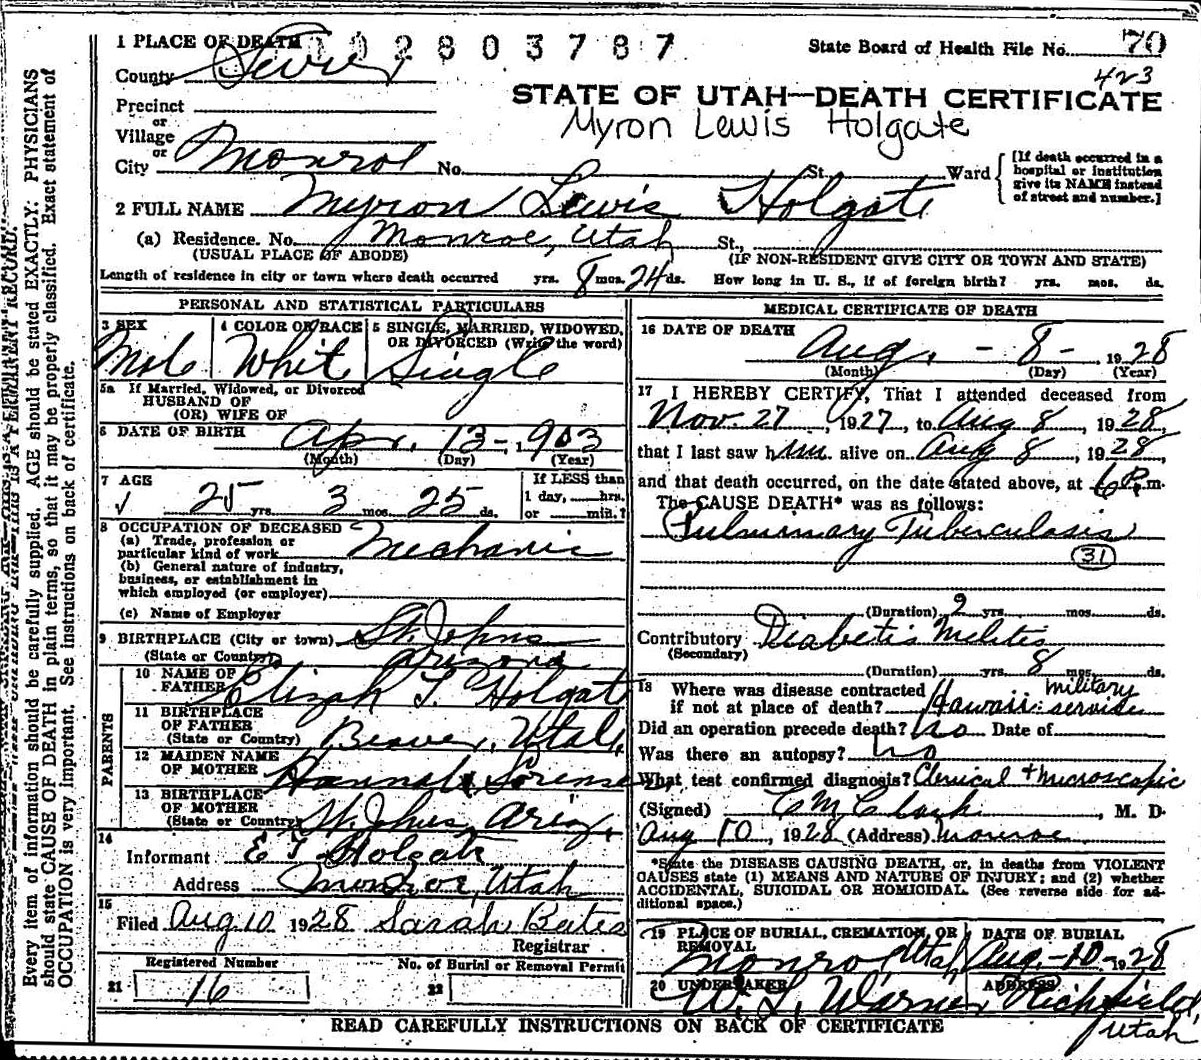 1 PLACE OF DEATH 1 0 2 8 0 3 7 8 7
State Board of Health File No. 70
423
County Sevier
STATE OF UTAH—DEATH CERTIFICATE
Myron Lewis Holgate
Precinct
or
Village
or
City Monroe No. St. Ward
[If death occurred in a
hospital or institution
give its NAME instead
of street and number.]
2 FULL NAME Myron Lewis Holgate
(a) Residence. No. Monroe, Utah St.,
(USUAL PLACE OF ABODE) (IF NON-RESIDENT GIVE CITY OR TOWN AND STATE)
Length of residence in city or town where death occurred yrs. 8 mos. 24 ds. How long in U. S., if of foreign birth? yrs. mos. ds.
PERSONAL AND STATISTICAL PARTICULARS
3 SEX 4 COLOR OR RACE 5 SINGLE, MARRIED, WIDOWED,
OR DIVORCED (Write the word)
Male Whit Single
5a If Married, Widowed, or Divorced
HUSBAND OF
(OR) WIFE OF
6 DATE OF BIRTH Apr. 13-, 1903
(Month) (Day) (Year)
7 AGE 25 yrs. 3 mos. 25 ds.
If LESS than
1 day, hrs.
or min.?
8 OCCUPATION OF DECEASED
(a) Trade, profession or
particular kind of work Mechanic
(b) General nature of industry,
business, or establishment in
which employed (or employer)
(c) Name of Employer
9 BIRTHPLACE (City or town) St. Johns
(State or Country) Arizona
PARENTS
10 NAME OF
FATHER Elizah T. Holgate
11 BIRTHPLACE
OF FATHER
(State or Country) Beaver, Utah,
12 MAIDEN NAME
OF MOTHER Hannah Sorense
13 BIRTHPLACE
OF MOTHER
(State or Country) St. Johns, Ariz,
14
Informant E T Holgate
Address Monroe, Utah
15
Filed Aug 10 1928 Sarah Bates
Registrar
Registered Number No. of Burial or Removal Permit
21 16 22
MEDICAL CERTIFICATE OF DEATH
16 DATE OF DEATH
Aug. - 8 - 1928
(Month) (Day) (Year)
17 I HEREBY CERTIFY, That I attended deceased from
Nov. 27, 1927, to Aug 8, 1928,
that I last saw him alive on Aug 8, 1928,
and that death occurred, on the date stated above, at 6 P. m.
The CAUSE DEATH* was as follows:
Pulmonary Tuberculosis
31
(Duration) 2 yrs. mos. ds.
Contributory Diabetis Melitis
(Secondary)
(Duration) yrs. 8 mos. ds.
18 Where was disease contracted
if not at place of death? Hawaii: military service
Did an operation precede death? no Date of
Was there an autopsy? no
What test confirmed diagnosis? Clinical + microscopic
(Signed) C M Clark, M. D.
Aug 10, 1928 (Address) Monroe
*State the DISEASE CAUSING DEATH, or, in deaths from VIOLENT
CAUSES state (1) MEANS AND NATURE OF INJURY; and (2) whether
ACCIDENTAL, SUICIDAL OR HOMICIDAL. (See reverse side for ad-
ditional space.)
19 PLACE OF BURIAL, CREMATION, OR
REMOVAL
DATE OF BURIAL
Monroe Utah Aug.-10-1928
20 UNDERTAKER ADDRESS
W. L. Warner Richfield,
Utah
READ CAREFULLY INSTRUCTIONS ON BACK OF CERTIFICATE
Every item of information should be carefully supplied. AGE should be stated EXACTLY. PHYSICIANS
should state CAUSE OF DEATH in plain terms, so that it may be properly classified. Exact statement of
OCCUPATION is very important. See instructions on back of certificate.